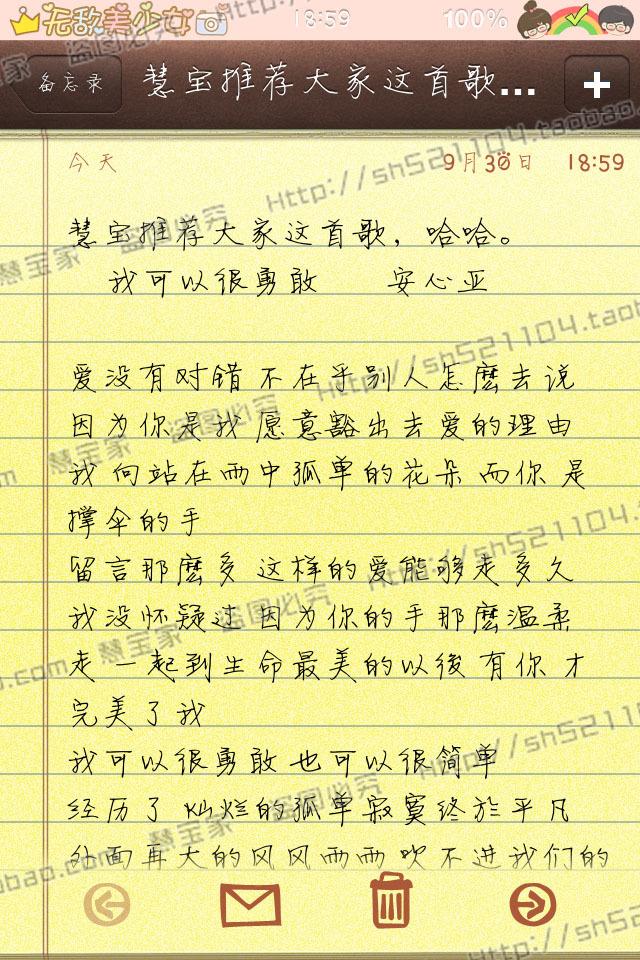 无敌美少女 18:59 100%
备忘录 慧宝推荐大家这首歌... +
今天 9月30日 18:59
慧宝推荐大家这首歌，哈哈。
我可以很勇敢 安心亚
爱没有对错 不在乎别人怎麽去说
因为你是我 愿意豁出去爱的理由
我 向站在雨中孤单的花朵 而你 是
撑伞的手
留言那麽多 这样的爱能够走多久
我没怀疑过 因为你的手那麽温柔
走 一起到生命最美的以後 有你 才
完美了我
我可以很勇敢 也可以很简单
经历了 灿烂的孤单寂寞终於平凡
外面再大的风风雨雨 吹不进我们的
慧宝家 盗图必究 Http://sh521104.taobao.com